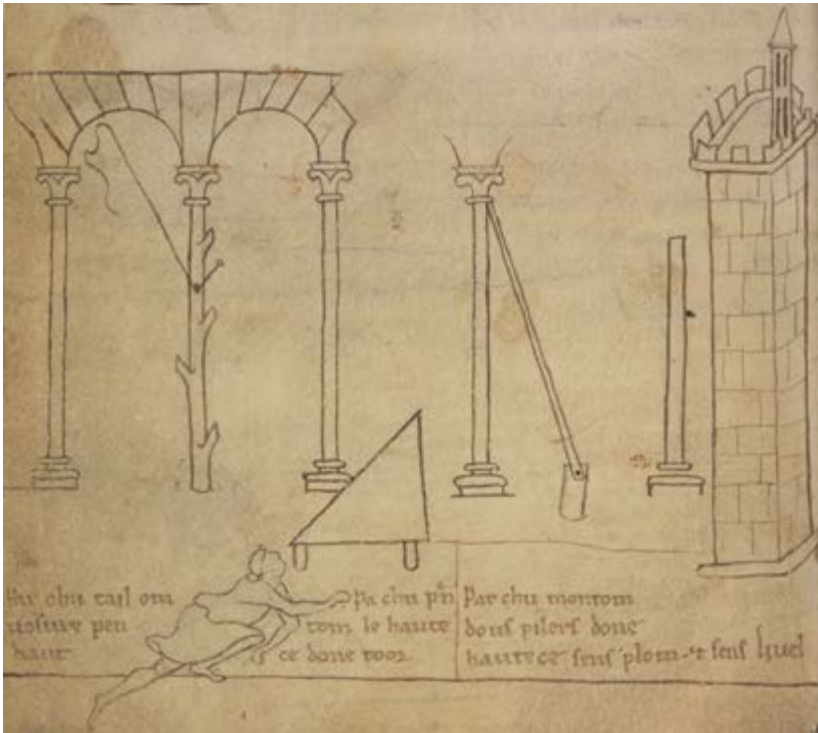 chu tail om
vosure pen
chu
tom le haute
ce done toor
Par chu montom
dous pilers done
hautece sens plom ⁊ sens livel